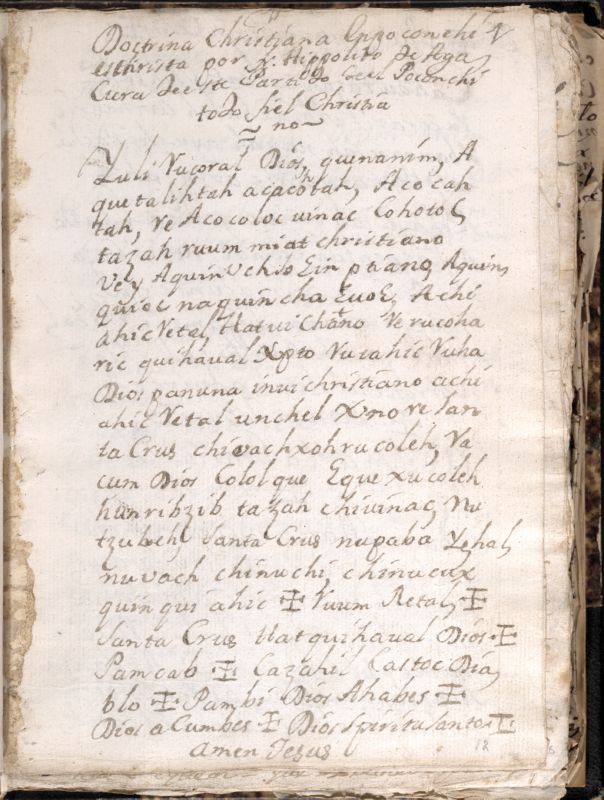 Doctrina Christiana En poconchi
es chrixta por fr. Hippolito de Aga
Cura de este Partido de el Poconchi
todo fiel Christia
~ no ~
Yuli Vucoral Dios, quenanim, A
que talihtah acacotah, Aco cah
tah, re Acocoloc uinac Cohotol
tazah ruum miat christiano
Ve, Aquin Vchilo Ein ptiano, Aquin
quioe naquin cha Euoe, Achi
ahic Vetal, Hat vi Chano Ve rucoha
ric quihaual Xpto Vutahic Vuha
Dios panuna inui christiano achi
ahic Vetal unchel Xno re San
ta Crus chivach xoh rucoleh, Va
cum Dios Colol que Eque xucoleh
hunribzib tazah chivinac, Nu
tzubeh, Santa Crus nupaba Yehal,
nuvach chinuchi, chinucux
quin qui ahic ✠ Vuum Retal, ✠
Santa Crus Hat quihaual Dios ✠
Pamcab ✠ Cazahil Castoc Dia,
blo ✠ Pambi Dios Ahabes ✠
Dios a Cumbes ✠ Dios Spiritu Santo ✠
Amen Jesus
12